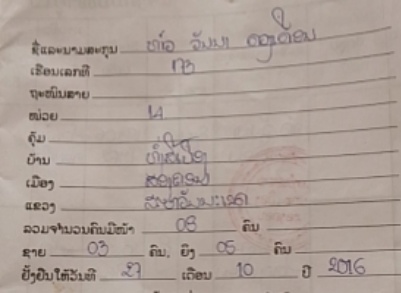 ຊື່ແລະນາມສະກຸນ ທ້າວ ວັນນາ
ເຮືອນເລກທີ 173
ຖະໜົນສາຍ
ໜ່ວຍ 14
ຄຸ້ມ
ບ້ານ
ເມືອງ
ແຂວງ ສະຫວັນນະເຂດ
ລວມຈຳນວນຄົນມີໜ້າ 08 ຄົນ
ຊາຍ 03 ຄົນ, ຍິງ 05 ຄົນ
ຢັ້ງຢືນໃຫ້ວັນທີ 27 ເດືອນ 10 ປີ 2016